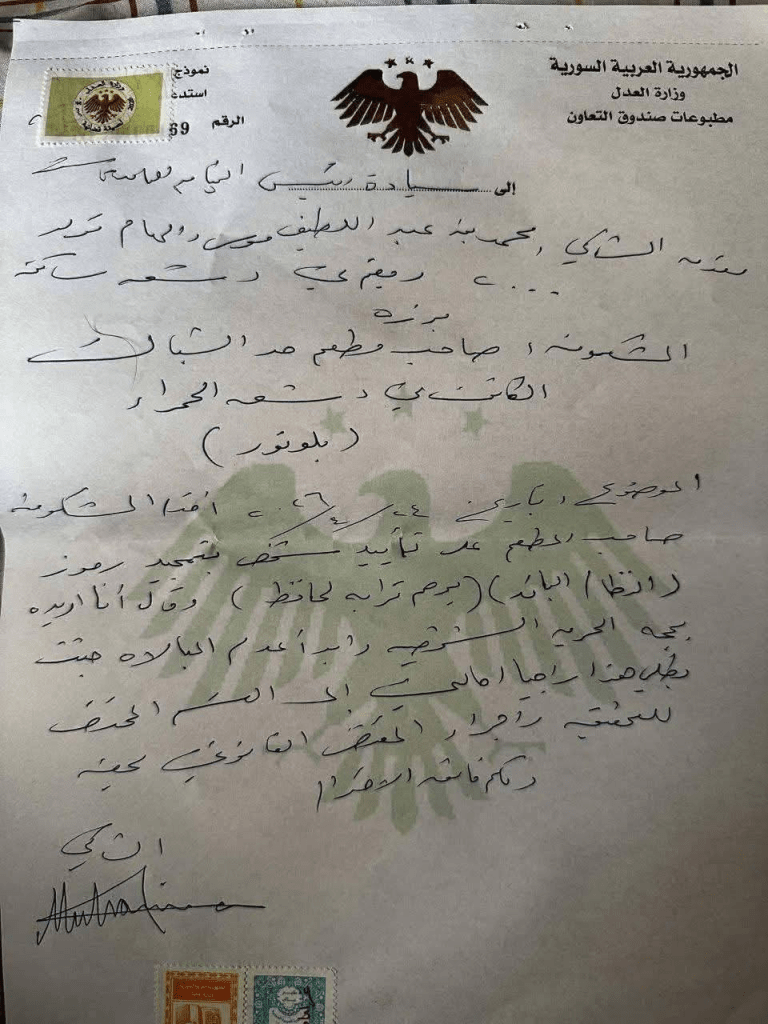 الجمهورية العربية السورية
وزارة العدل
مطبوعات صندوق التعاون
نموذج
استد
الرقم 69
إلى سيادة رئيس النيابة العامة
مقدمه الشاكي محمد عبد اللطيف
دمشق ساكن
برزة
المشكو منه : صاحب مطعم حد الشباك
الكائن في دمشق الحمراء
(بلوتور)
الموضوع : بتاريخ ٢٤/٤/٢٠٢٦ أقدم المشكو منه
صاحب المطعم على تأييد شخص بتمجيد رموز
(النظام البائد) (يرحم ترابه لحافظ) وقال أنا اريده
بحجة الحرية الشخصية وابدأ عدم المبالاه جئت
بطلبي هذا راجيا احالتي إلى القسم المختص
للتحقيق واجراء المقتضى القانوني بحقه
ولكم فائق الاحترام
الشاكي